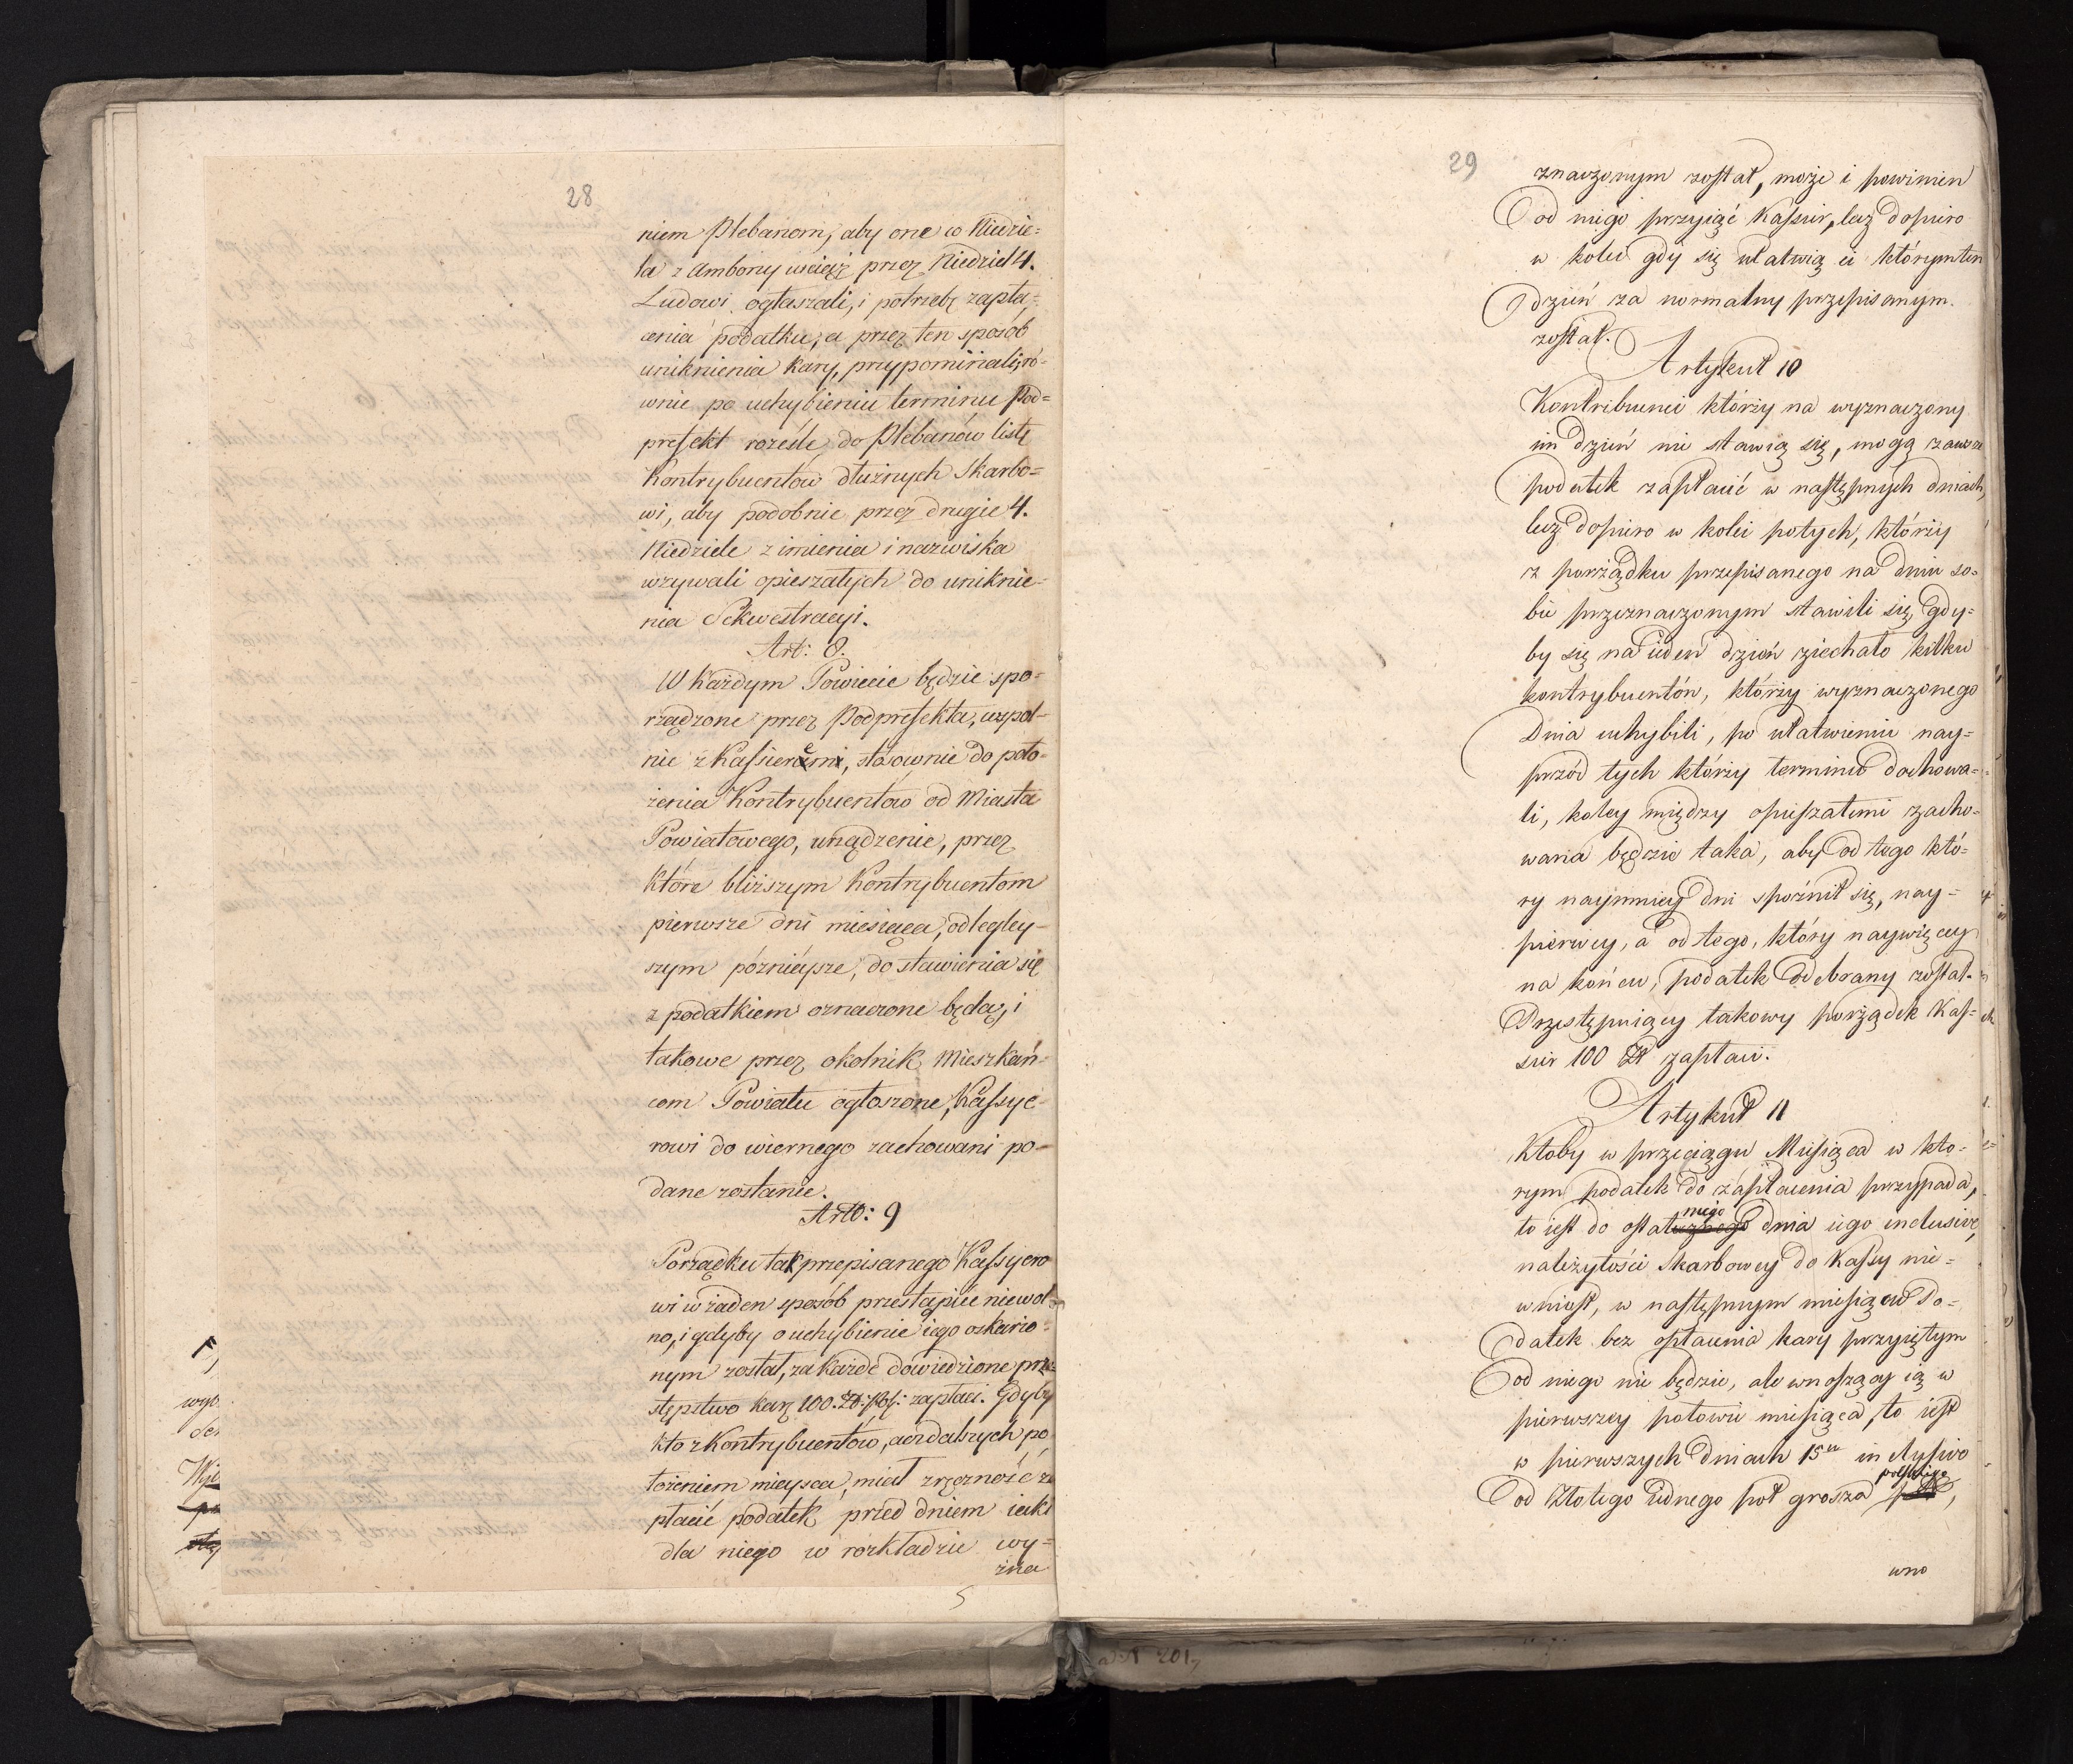 28
niem Plebanom, aby one w Niedzie=
la z Ambony wciąż przez Niedziel 4.
Ludowi ogłaszali, i potrzebę zapła=
cenia podatku, a przez ten sposób
uniknienia kary, przypominali, ró-
wnie po uchybieniu terminu Pod=
prefekt roześle do Plebanów listę
Kontrybuentów dłużnych Skarbo=
wi, aby podobnie przez drugie 4.
Niedziele z imienia i nazwiska
wzywali opieszałych do uniknie-
nia Sekwestracyi.
Art: 8.
W każdym Powiecie będzie spo=
rządzone przez Podprefekta, wspol-
nie z Kassierem, stosownie do poło-
żenia Kontrybuentów od Miasta
Powiatowego, urządzenie, przez
które bliższym Kontrybuentom
pierwsze dni miesiąca, odlegley-
szym późnieysze, do stawienia się
z podatkiem oznaczone będą, i
takowe przez okolnik Mieszkań-
com Powiatu ogłoszone, Kassye-
rowi do wiernego zachowani po-
dane zostanie.
Art: 9
Porządku tak przepisanego Kassyero
wi w żaden sposób przestąpić niewol=
no, i gdyby o uchybienie iego oskarżo-
nym został, za każde dowiedzione prze=
stępstwo karę 100. Zł: Pol: zapłaci. Gdyby
kto z Kontrybuentów, acz dalszych po
łożeniem mieysca, miał zręczność za
płacić podatek przed dniem iaki
dla niego w rozkładzie wy=
zna
5
wyo
29
znaczonym został, może i powinien
od niego przyiąć Kassier, lecz dopiero
w kolei gdy się ułatwią ci którym ten
dzień za normalny przepisanym
został.
Artykuł 10
Kontribuenci którzy na wyznaczony
im dzień nie stawią się, mogą zawsze
podatek zapłacić w następnych dniach,
lecz dopiero w kolei po tych, którzy
z porządku przepisanego na dniu so=
bie przeznaczonym stawili się, gdy=
by się na ieden dzień ziechało kilku
kontrybuentów, którzy wyznaczonego
Dnia uchybili, po ułatwieniu nay=
przód tych którzy terminu dochowa=
li, koley między opieszałemi zacho-
wana będzie taka, aby od tego któ=
ry naymniey dni spoźnił się, nay=
pierwey, a od tego, który naywięcey
na końcu, podatek odebrany został.
Przestępuiący takowy porządek Kas=
sier 100 Zł zapłaci.
Artykuł 11
Ktoby w przeciągu Miesiąca w któ-
rym podatek do zapłacenia przypada,
niego
to iest do ostatecznego dnia iego inclusive,
należytości Skarbowey do Kassy nie=
wniosł, w następnym miesiącu Po=
datek bez opłacenia kary przyiętym
od niego nie będzie, ale wnoszący ią w
pierwszey połowie miesiąca, to iest
w pierwszych dniach 15tu inclusive
polskiego
od Złotego iednego poł grosza
wno